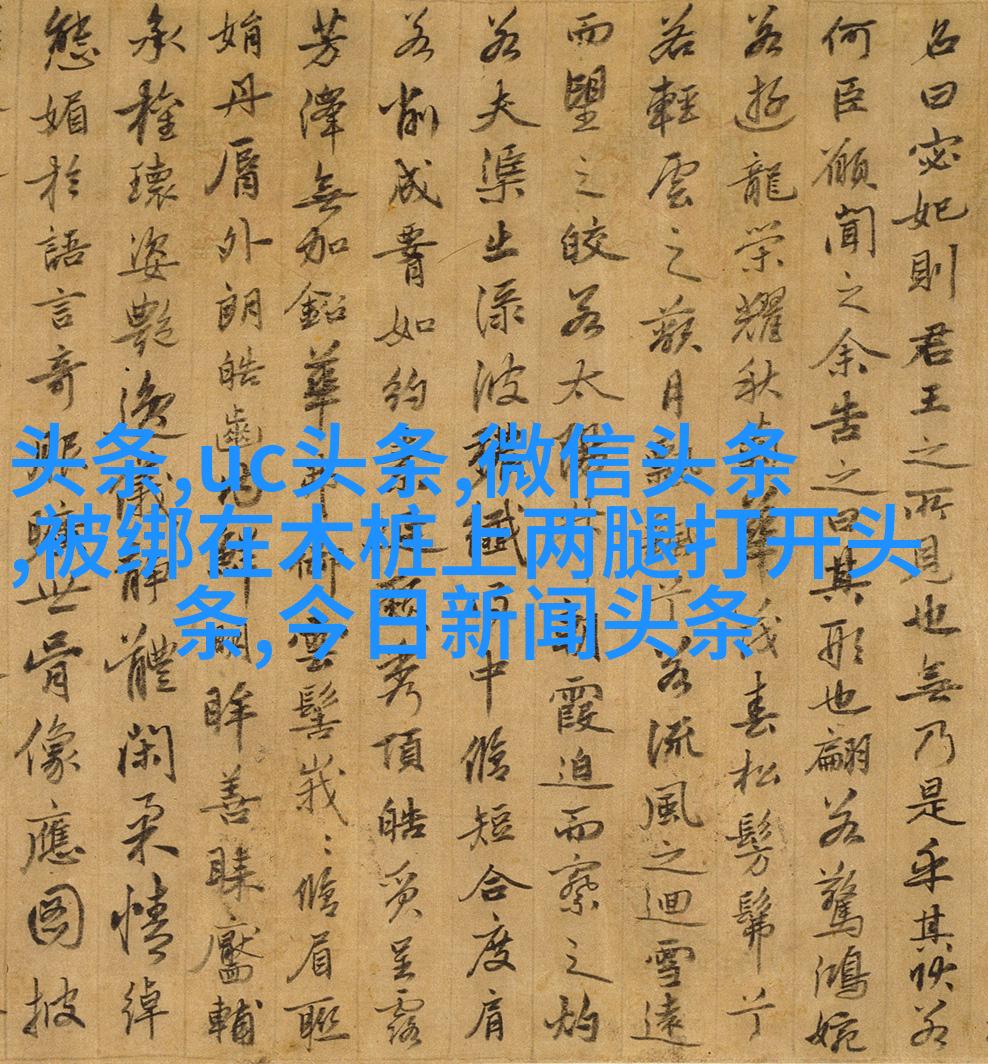 名曰宓妃則君王之所見也無乃是乎其狀若
何臣願聞之余告之曰其形也翩若驚鴻婉
若遊龍榮耀秋菊華茂春松髣髴兮
若輕雲之蔽月飄颻兮若流風之迴雪遠
而望之皎若太陽升朝霞迫而察之灼
若夫渠出淥波穠纖得中脩短合度肩
若削成腰如約素延頸秀項皓質呈露
芳澤無加鉛華弗御雲髻峩〻脩眉聯
娟丹脣外朗皓齒內鮮明眸善睞靨輔
承權瓌姿艷逸儀靜體閑柔情綽
態媚於語言奇服曠世骨像應圖披
头条,uc头条,微信头条
,被绑在木桩上两腿打开头
条,今日新闻头条